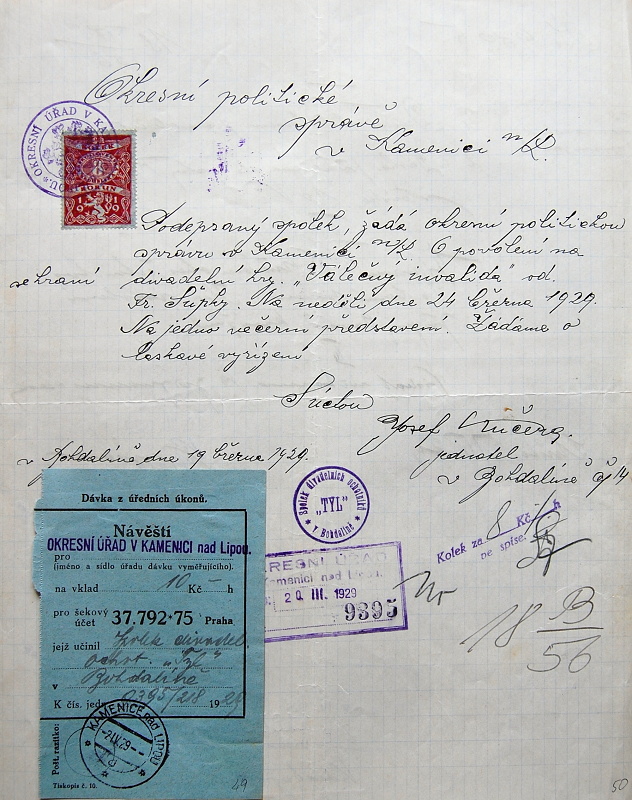 Okresní politické
správě
v Kamenici n/L.
OKRESNÍ ÚŘAD V KA
LIPOU
KOLEK
KORUN
Podepsaný spolek, žádá okresní politickou
správu v Kamenici n/L. O povolení na
sehraní divadelní hry. „Válečný invalida" od.
Fr. Sùpky. Na neděli dne 24 března 1929.
Na jedno večerní představení. Žádáme o
laskavé vyřízení
Súctou
Josef Kučera.
jednatel
v Bohdalíně čp 14
v Bohdalíně dne 19 března 1929.
Spolek divadelních ochotníků
"TYL"
v Bohdalíně
Kolek za 8 Kč h
na spise.
KRESNÍ ÚŘAD
Kamenici nad Lipou.
20 III. 1929
9395
18 B
56
Dávka z úředních úkonů.
Návěští
OKRESNÍ ÚŘAD V KAMENICI nad Lipou.
pro
(jméno a sídlo úřadu dávku vyměřujícího).
na vklad 10 Kč — h
pro šekový
účet 37.792•75 Praha
jejž učinil Spolek divadel.
ochot. „Tyl"
v Bohdalíně
K čís. jedn. 9395/218 1929
KAMENICE nad LIPOU
Pošt. razítko:
Tiskopis č. 10.
49
50